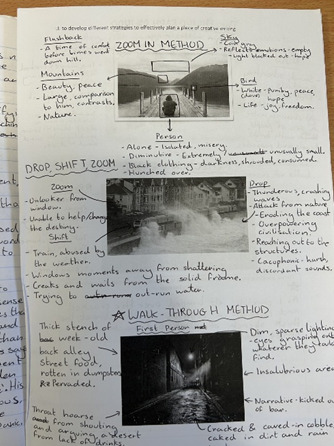 to develop different strategies to effectively plan a piece of creative writing
Flashback
- A time of
before times went
down hill.
ZOOM IN METHOD
Sky
- Reflect emotions - empty
- Light blocked out - hope
Mountains
- Beauty, peace
- Large, comparison
to them, contrasts.
- Nature.
Bird
- White - purity, peace
(dove) hope
- Life - joy, freedom.
Person
- Alone - isolated, misery.
- Diminutive - Extremely / unusually small.
- Black clothing - darkness, shrouded, consumed.
- Hunched over.
DROP, SHIFT, ZOOM
Zoom
- Onlooker from
window.
- Unable to help/change
the destiny.
Shift
- Train, abused by
the weather.
- Windows moments away from shattering
- Creaks and wails from the solid frame.
- Trying to out-run water.
Drop
- Thunderous, crashing
waves
- Attack from nature
- Eroding the coast
- Overpowering
civilisation.
- Reaching out to the
structures.
- Cacophonic - harsh,
discordant sounds.
WALK-THROUGH METHOD
First Person
Thick stench of
week-old
back alley
Street food,
rotten in dumpsters
Pervaded.
Dim, sparse lighting
- eyes grasping onto
they
find.
Insalubrious area
Narrative - kicked out
of bar.
Throat hoarse
from shouting
and arguing, a desert
from lack of drinks.
Cracked & caved-in cobbles
caked in dirt and rain